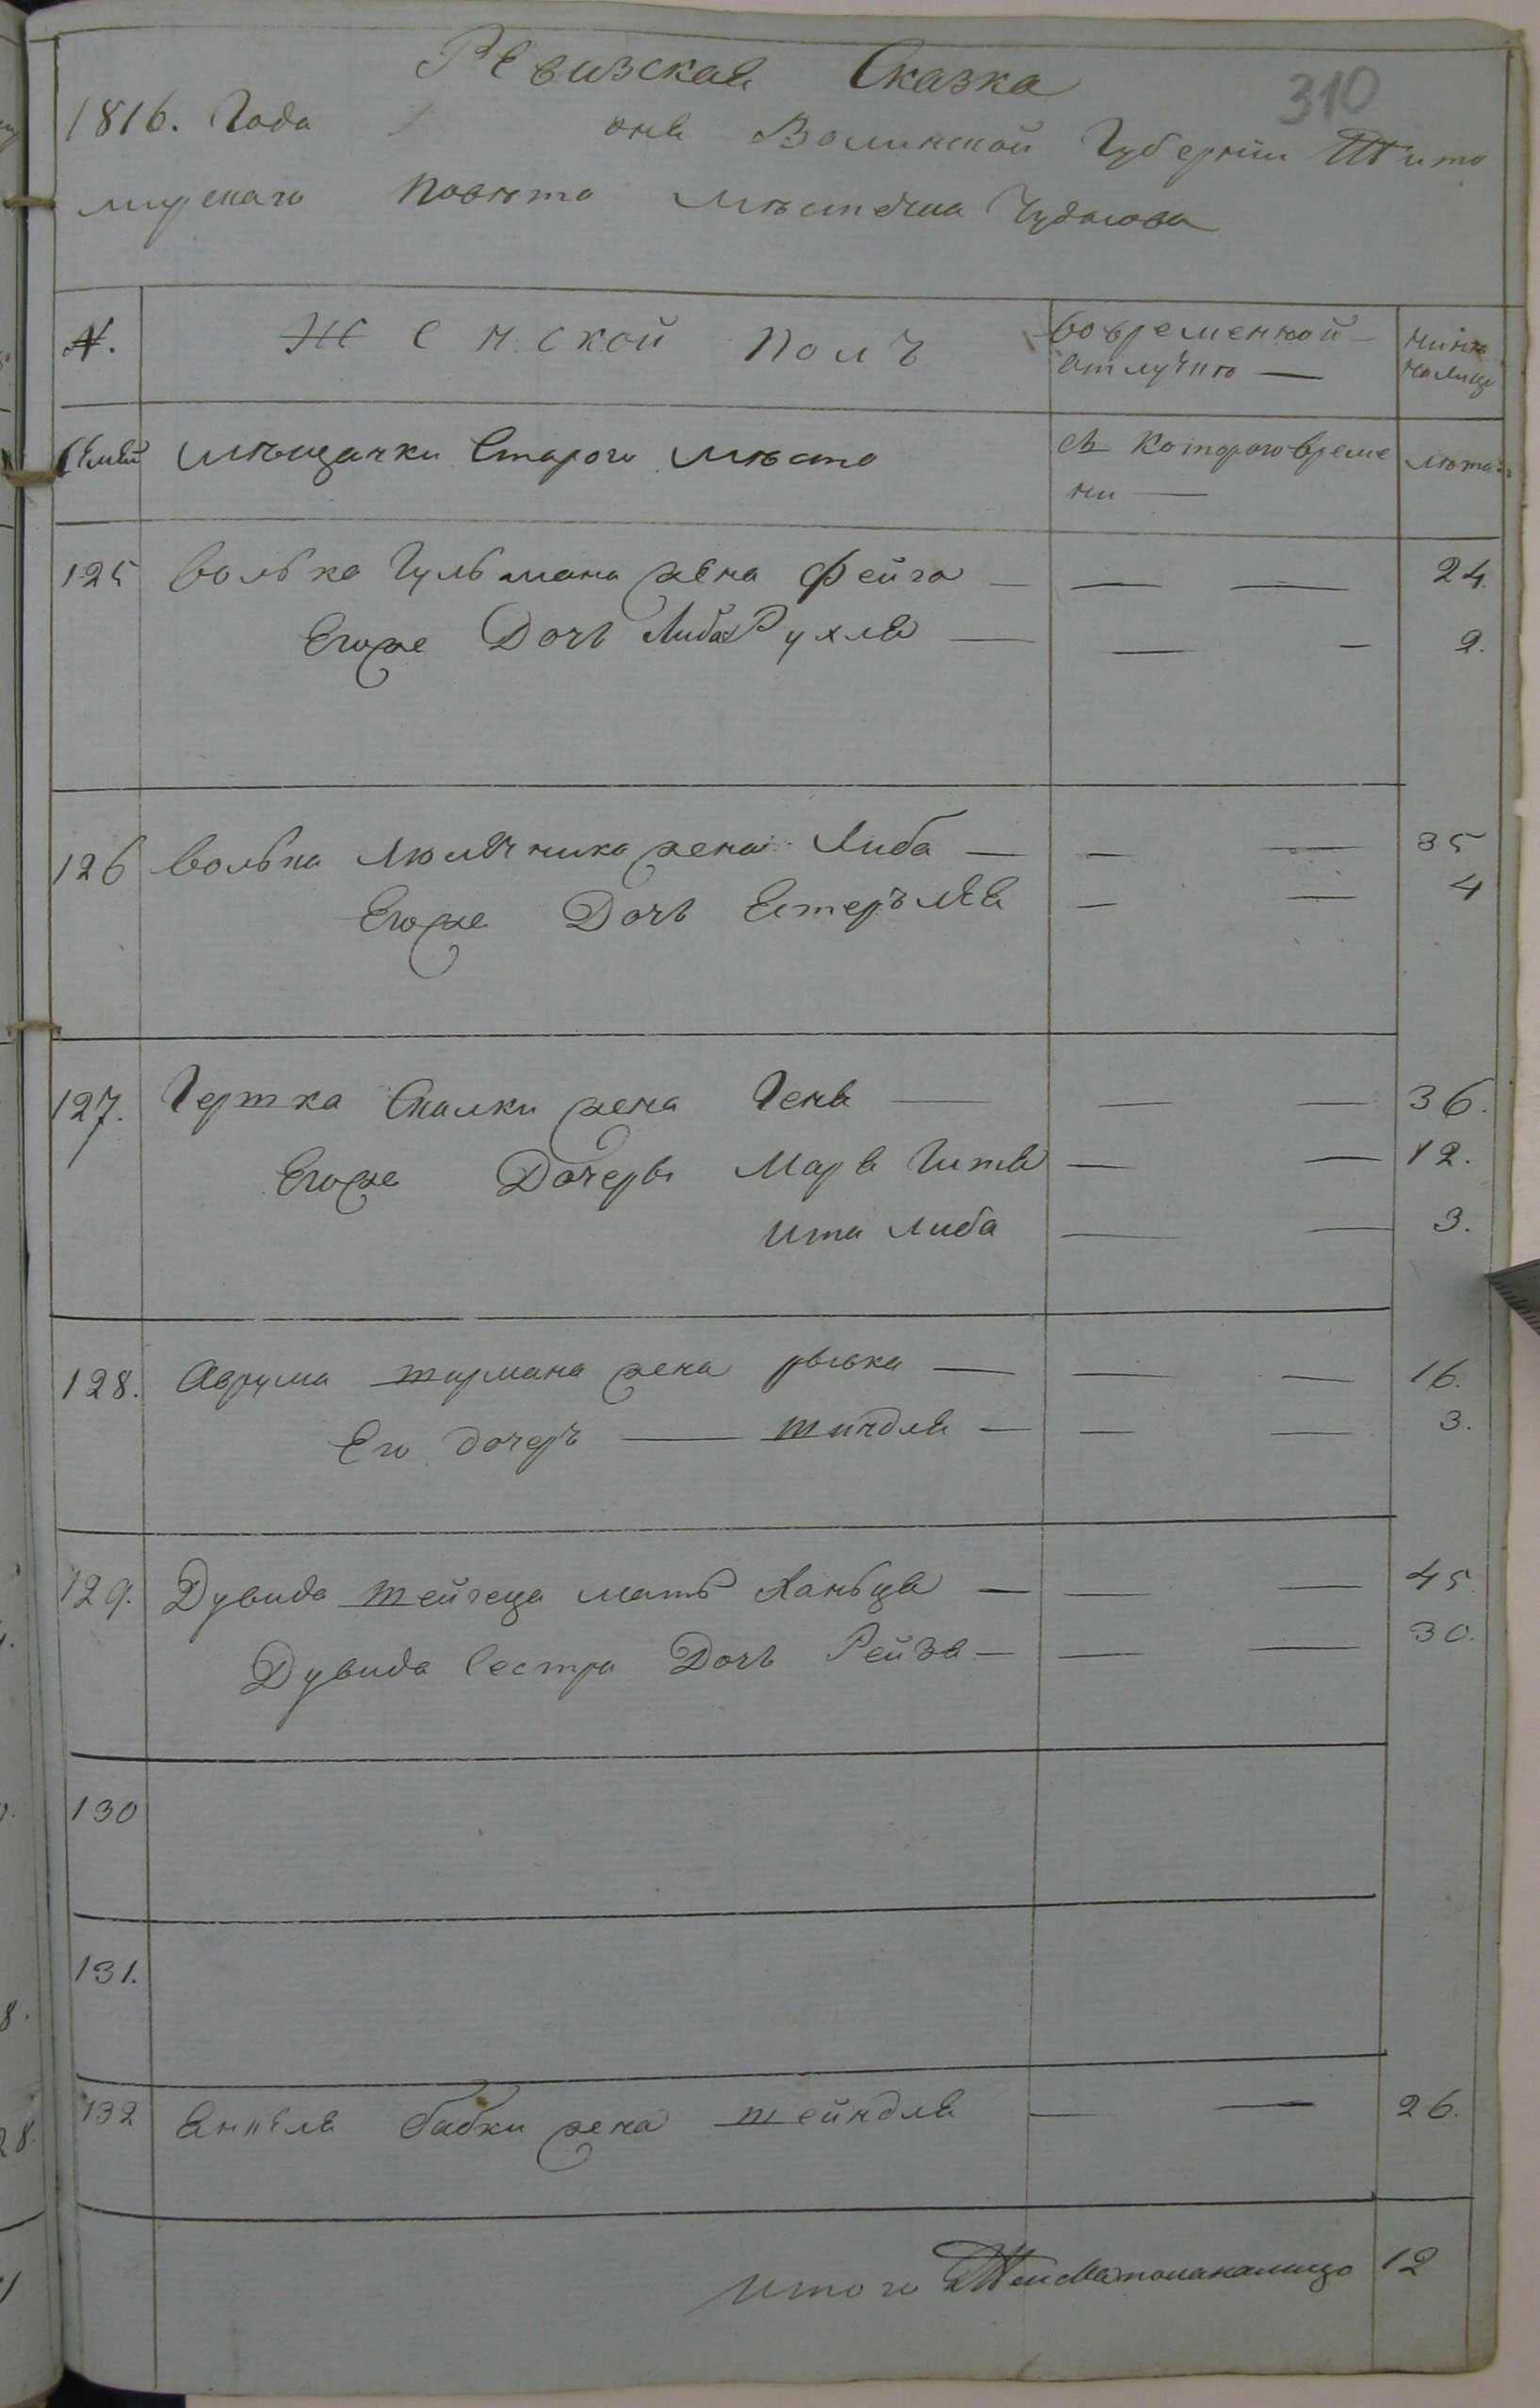 Ревизская Сказка
310
1816. Года дня Волинской Губернии Жито
мирского Повѣта Мѣстечка Чуднова
№. Женской Полъ вовременной отлучкѣ — нинѣ налицо
Семьи Мѣщанки Старого Мѣста съ которого време
ни — лѣта
125 Волька Гульмана жена Фейга — — — 24.
Егоже Дочь Либа Рухля — — — 2.
126 Волька жена Либа — — — 35
Егоже Дочь Естеръ Лея — — 4
127. Гершка Скалки жена Геня — — — 36.
Егоже Дочеры Маря Гитля — — 12.
Ита Либа — — 3.
128. Аврума шурмана жена рывка — — — 16.
Его дочеръ — шиндля — — — 3.
129. Дувида Шейгеца мать Ханьця — — — 45.
Дувида Сестра Дочь Рейзя — — — 30.
130
131.
132 Анкеля бабки жена шейндля — — 26.
Итого налицо 12